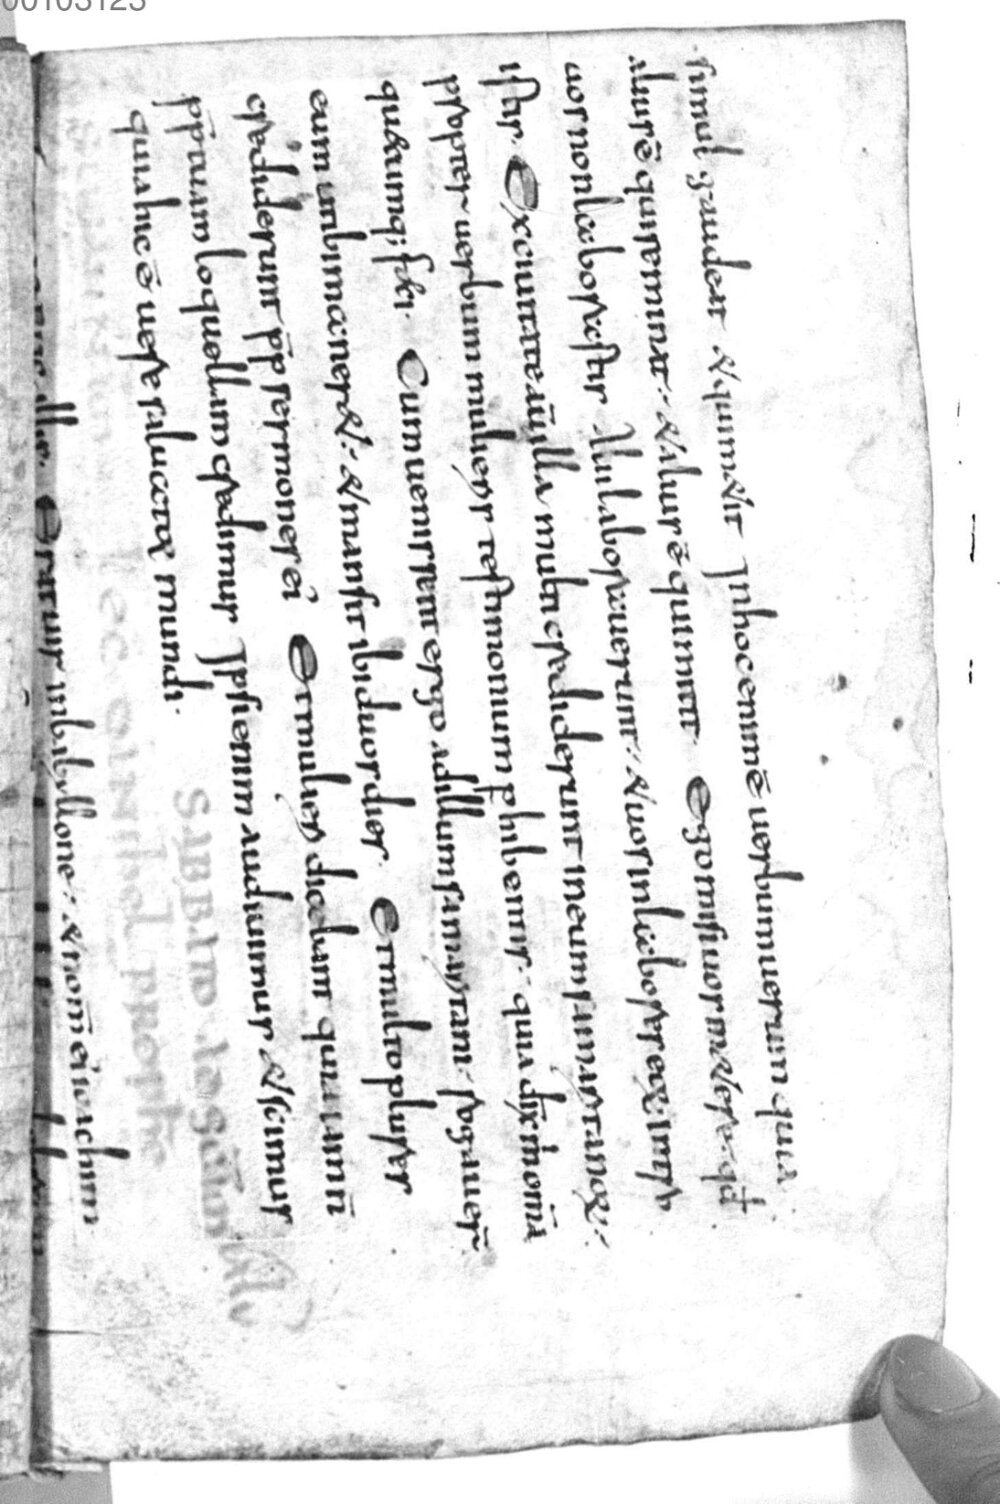 00103123
simul gaudeat & qui m&it. In hoc enim ē uerbum uerum quia
alius ē qui seminat. & alius ē qui m&it. Ego misi uos m&ere qd
uos non laborastis. Alii laborauerunt. & uos in labores eorum intro
istis. Ex ciuitate aū illa multi crediderunt in eum samaritanorum.
propter uerbum mulieris testimonium phibentis. quia dix m omia
quecumq; feci. Cum uenissent ergo ad illum samaritani. rogauer̄
eum ut ibi maner&. & mansit ibi duos dies. Et multo plures
crediderunt pp sermonē ei. Et mulieri dicebant quia iam n̄
pp tuam loquellam credimus. Ipsi enim audiuimus & scimus
quia hic ē uere saluator mundi.
SABBATO
Erat uir in babyllone. & nom̄ ei ioachim